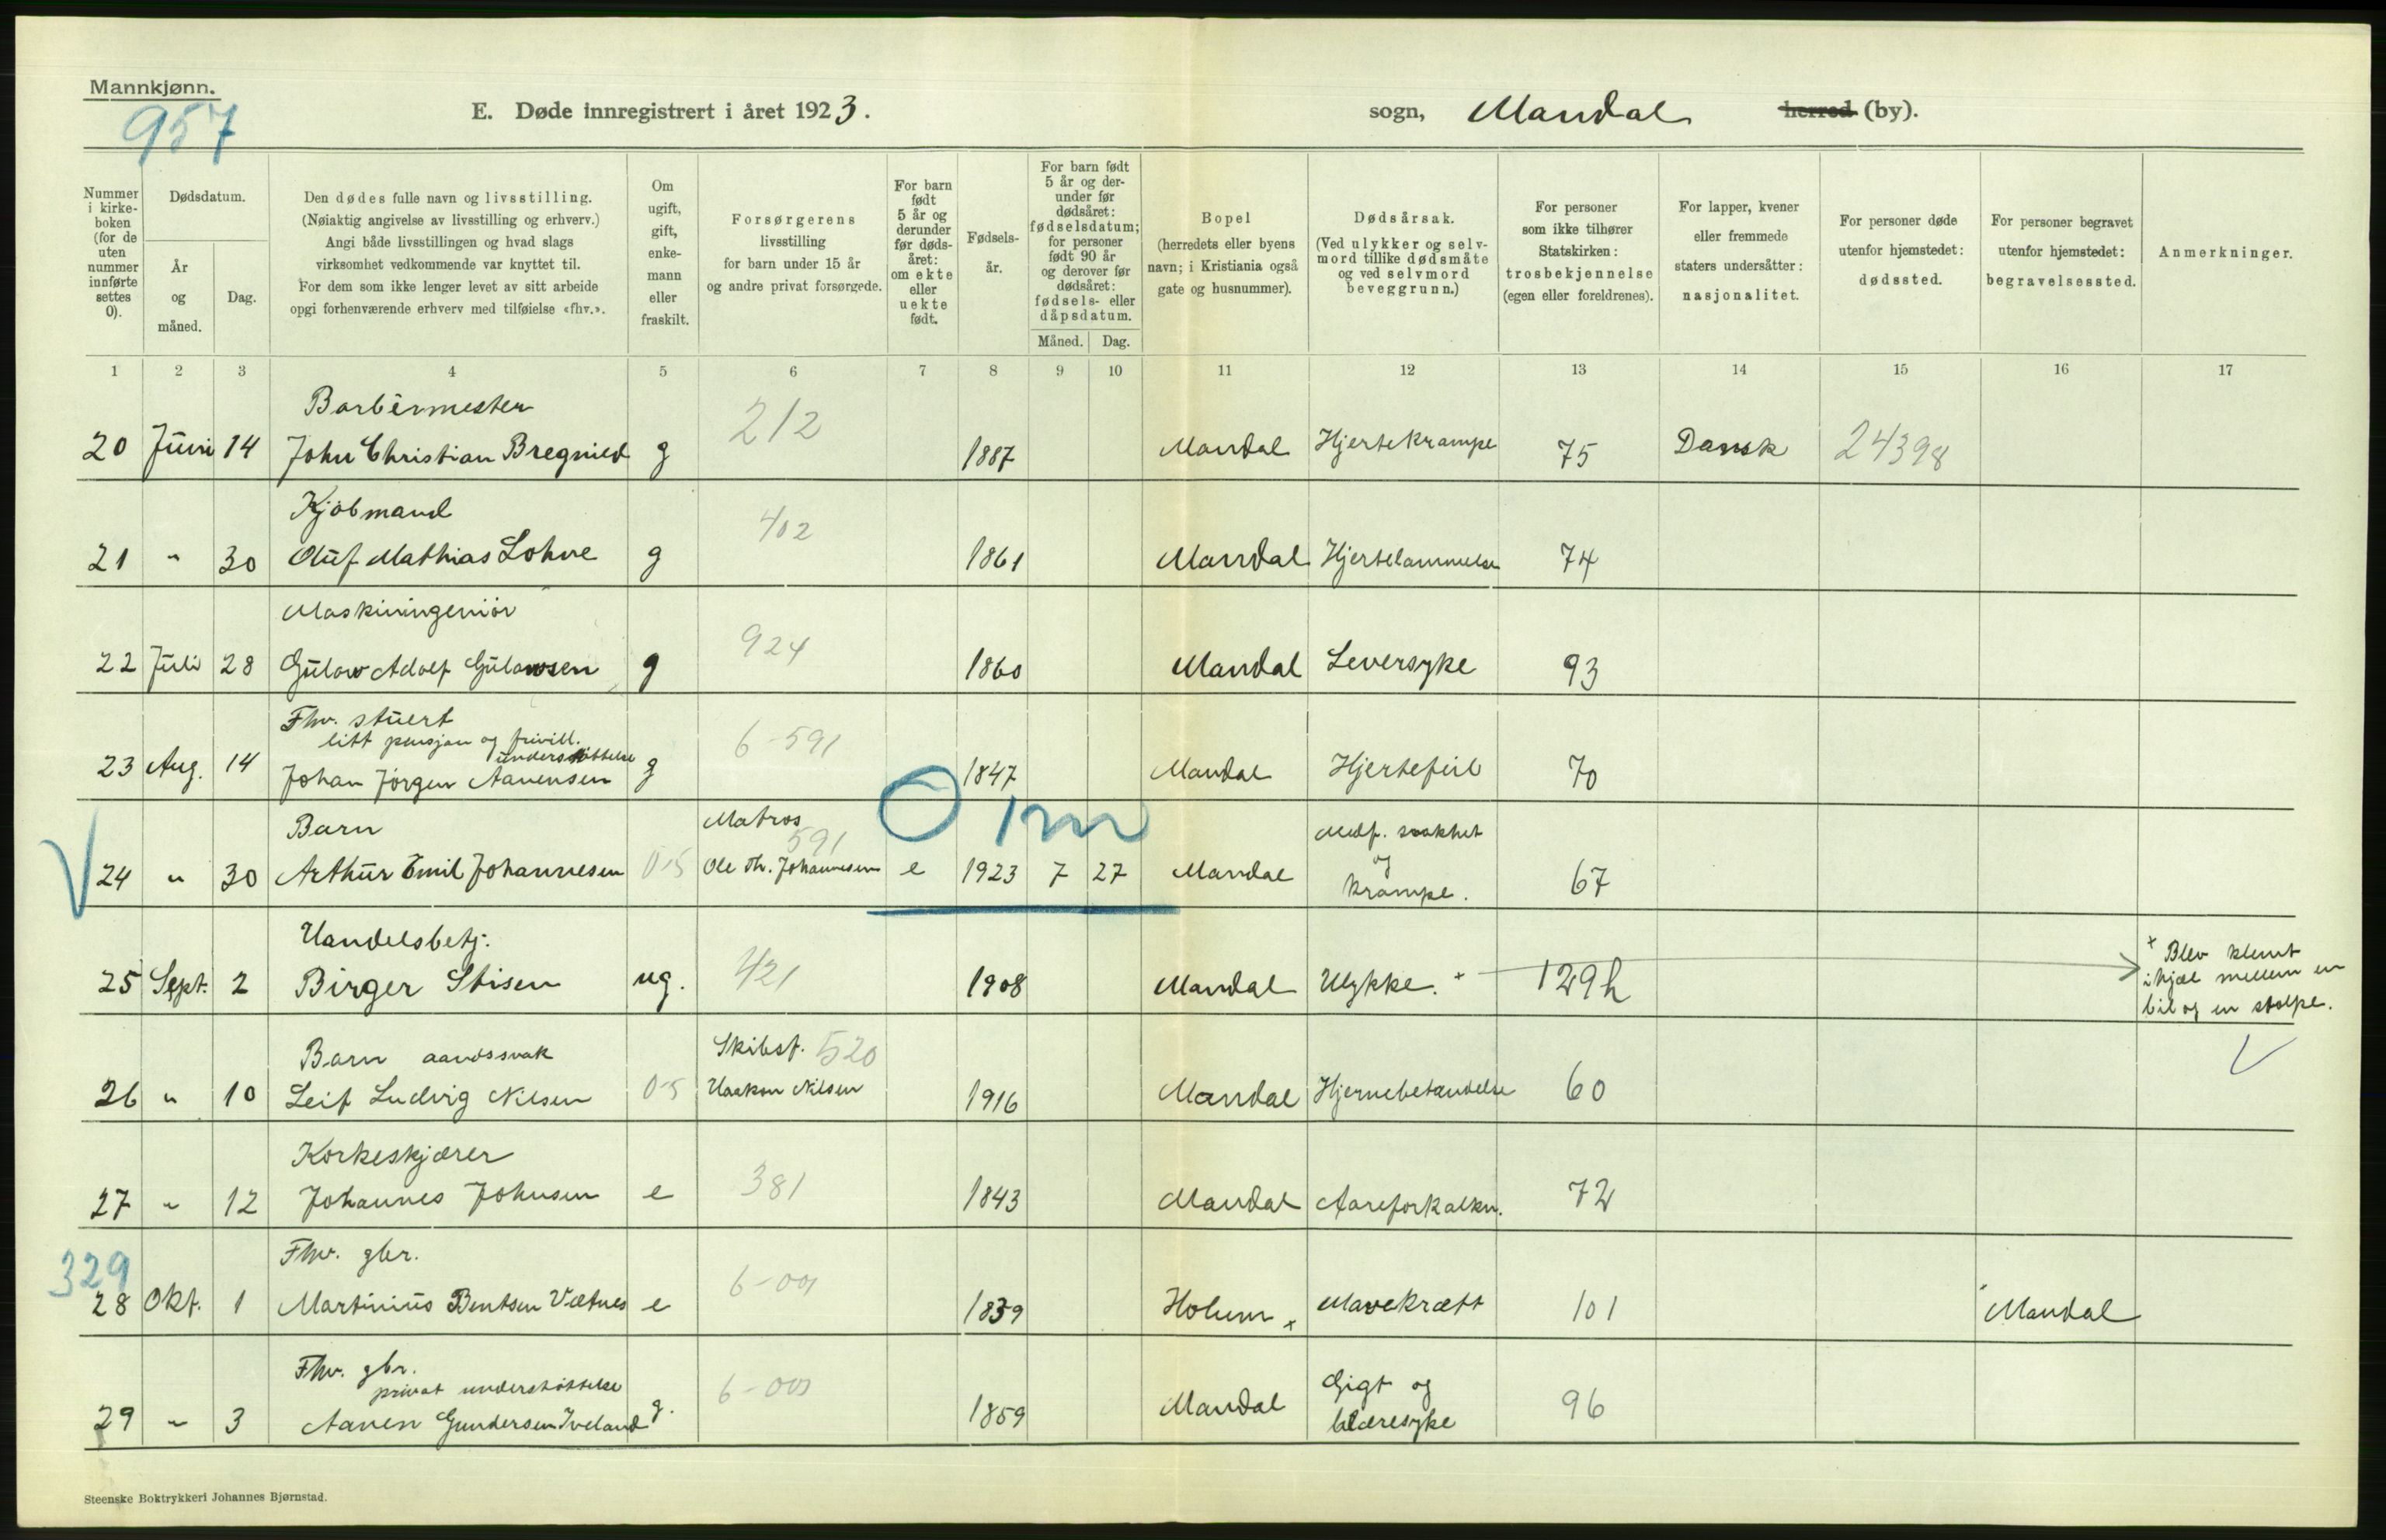 Mannkjønn.
957
E. Døde innregistrert i året 1923.
sogn, Mandal herred (by).
Nummer i kirke-boken (for de uten nummer innførte settes 0).
Dødsdatum.
År og måned.
Dag.
Den dødes fulle navn og livsstilling.
(Nøiaktig angivelse av livsstilling og erhverv.)
Angi både livsstillingen og hvad slags
virksomhet vedkommende var knyttet til.
For dem som ikke lenger levet av sitt arbeide
opgi forhenværende erhverv med tilføielse «fhv.».
Om ugift, gift, enke-mann eller fraskilt.
Forsørgerens livsstilling for barn under 15 år og andre privat forsørgede.
For barn født 5 år og derunder før døds-året: om ekte eller uekte født.
Fødsels-år.
For barn født 5 år og der-under før dødsåret: fødselsdatum; for personer født 90 år og derover før dødsåret: fødsels- eller dåpsdatum.
Måned. Dag.
Bopel (herredets eller byens navn; i Kristiania også gate og husnummer).
Dødsårsak. (Ved ulykker og selv-mord tillike dødsmåte og ved selvmord beveggrunn.)
For personer som ikke tilhører Statskirken: trosbekjennelse (egen eller foreldrenes).
For lapper, kvener eller fremmede staters undersåtter: nasjonalitet.
For personer døde utenfor hjemstedet: dødssted.
For personer begravet utenfor hjemstedet: begravelsessted.
Anmerkninger.
1 2 3 4 5 6 7 8 9 10 11 12 13 14 15 16 17
Barbermester 212
20 Juni 14 John Christian Bregnied g 1887 Mandal Hjertekrampe 75 Dansk 24398
Kjøbmand 402
21 " 30 Oluf Mathias Lohne g 1861 Mandal Hjertelammelse 74
Maskiningeniør 924
22 Juli 28 Gulow Adolf Gulowsen g 1860 Mandal Leversyke 93
Fhv. stuert
litt pensjon og frivill. understøttelse 6-591
23 Aug. 14 Johan Jørgen Aanensen g 1847 Mandal Hjertefeil 70
Barn Matros 591 0 1m Medf. svakhet og
24 " 30 Arthur Emil Johannesen 0-5 Ole Th. Johannesen e 1923 7 27 Mandal krampe. 67
Handelsbetj. 421
25 Sept. 2 Birger Stisen ug. 1908 Mandal Ulykke. + 129h
+ Blev klemt
ihjæl mellem en
bil og en stolpe.
Barn aandssvak Skibsf. 520
26 " 10 Leif Ludvig Nilsen 0-5 Haakon Nilsen 1916 Mandal Hjernebetændelse 60
Korkeskjærer 381
27 " 12 Johannes Johnsen e 1843 Mandal Aareforkalkn. 72
329 Fhv. gbr. 6-001
28 Okt. 1 Martinius Bentsen Vætnes e 1839 Holum + Mavekræft 101 Mandal
Fhv. gbr.
privat understøttelse 6-001 Gigt og
29 " 3 Aanen Gundersen Iveland g. 1859 Mandal blæresyke 96
Steenske Boktrykkeri Johannes Bjørnstad.